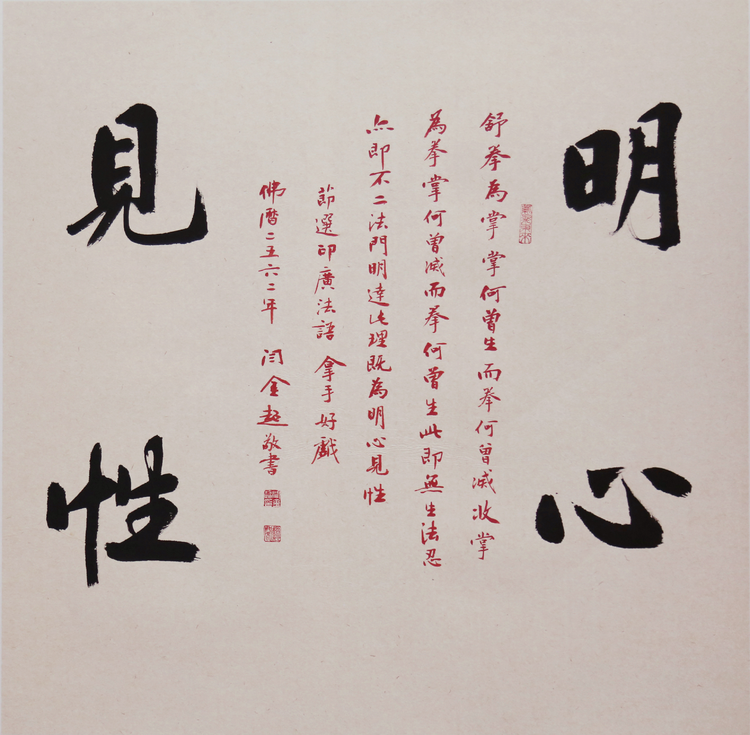 明心
見性
舒拳為掌掌何曾生而拳何曾滅收掌
為拳掌何曾滅而拳何曾生此即無生法忍
亦即不二法門明達此理既為明心見性
節選印廣法語拿手好戲
佛曆二五六二年 闫金超敬書